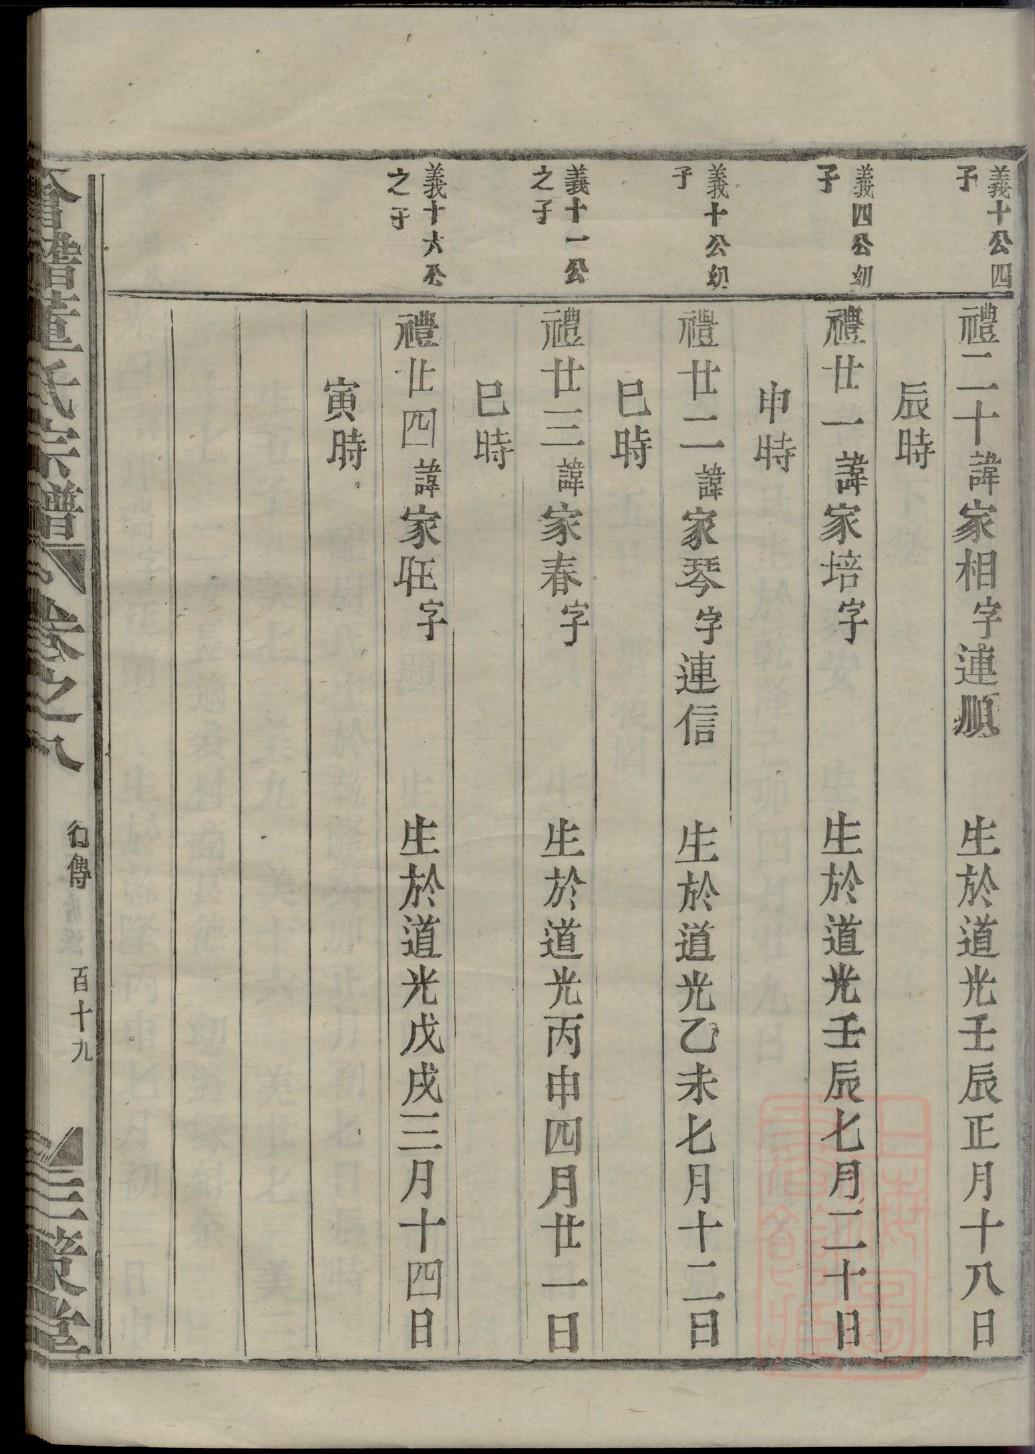 義十公四
子
禮二十諱家相字連順 生於道光壬辰正月十八日
辰時
義四公幼
子
禮廿一諱家培字 生於道光壬辰七月二十日
申時
義十公幼
子
禮廿二諱家琴字連信 生於道光乙未七月十二日
巳時
義十一公
之子
禮廿三諱家春字 生於道光丙申四月廿一日
巳時
義十六公
之子
禮廿四諱家旺字 生於道光戊戌三月十四日
寅時
董氏宗譜 卷之八 行傳 百十九 三策堂